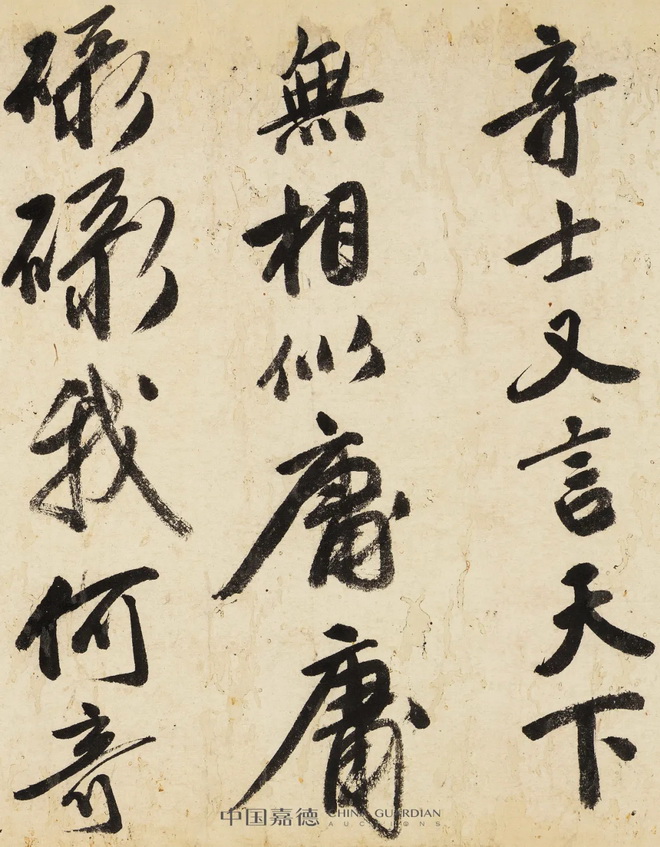 奇士又言天下
無相似庸庸
碌碌我何奇
中国嘉德 CHINA GUARDIAN
AUCTIONS